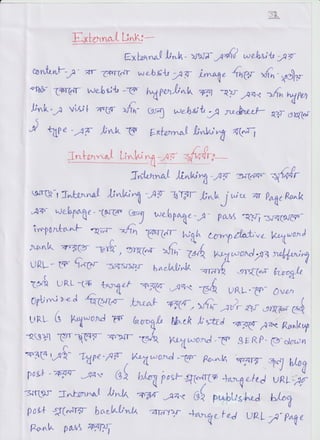 External Link:—
External link- যখন একটি website -এর
content -এ বা কোনো website -এর image দিয়ে যদি
website -কে hyperlink করা হয় এবং যদি hyper
link -এ visit করে যদি website -এ redirect হয় তাহলে
ঐ type -এর link কে External linking বলে।
Internal Linking -এর সুবিধা:—
Internal linking -এর অনেক সুবিধা
আছে। Internal linking -এর দ্বারা link juice বা Page Rank
এক webpage - থেকে অন্য webpage -এ pass হয়। সবথেকে
important হল যদি কোনো high competative keyword
rank করাতে চাই, তাহলে যদি সেই keyword -এর reffering
URL - কে দিয়ে backlink বানাই তাহলে Google
সেই URL কে target করবে এবং সেই URL -কে over
optimized হিসেবে treat করবে, যদি এটা হয় তাহলে সেই
URL ও keyword কে Google black listed করবে এবং Rankup
হওয়া keyword -কে SERP- তে down
করবে। এই Type -এর keyword -কে Rank করাতে blog
post - করব এবং ঐ blog post গুলোকে targeted URL -এর
সাথে Internal link করব এবং ঐ published blog
post গুলোর backlink বানাব targeted URL -এ Page
Rank pass করবে।